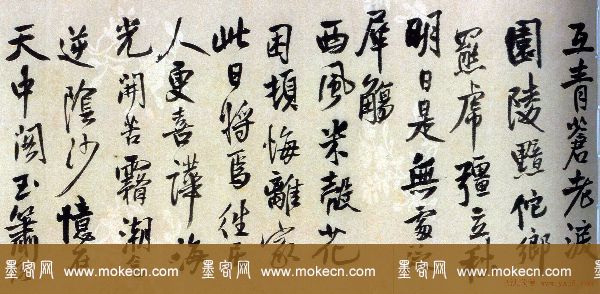 互青蒼老淚
園陵黯佗鄉
羆虎彊立科
明日是無
犀觴
西風米殼花
困頓悔離家
此日將焉往
人更喜譁海
光開苦霧潮
逆陰沙憶
天中閣玉簫
墨客网 www.mokecn.com 墨客网 www.mokecn.com 墨客网 www.mokecn.com